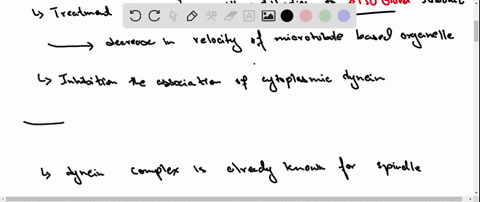 ↳ Treatmend
→ decrease in velocity of microtubule based organelle
↳ Inhibition the association of cytoplasmic dynein
↳ dynein complex is already known for spindle